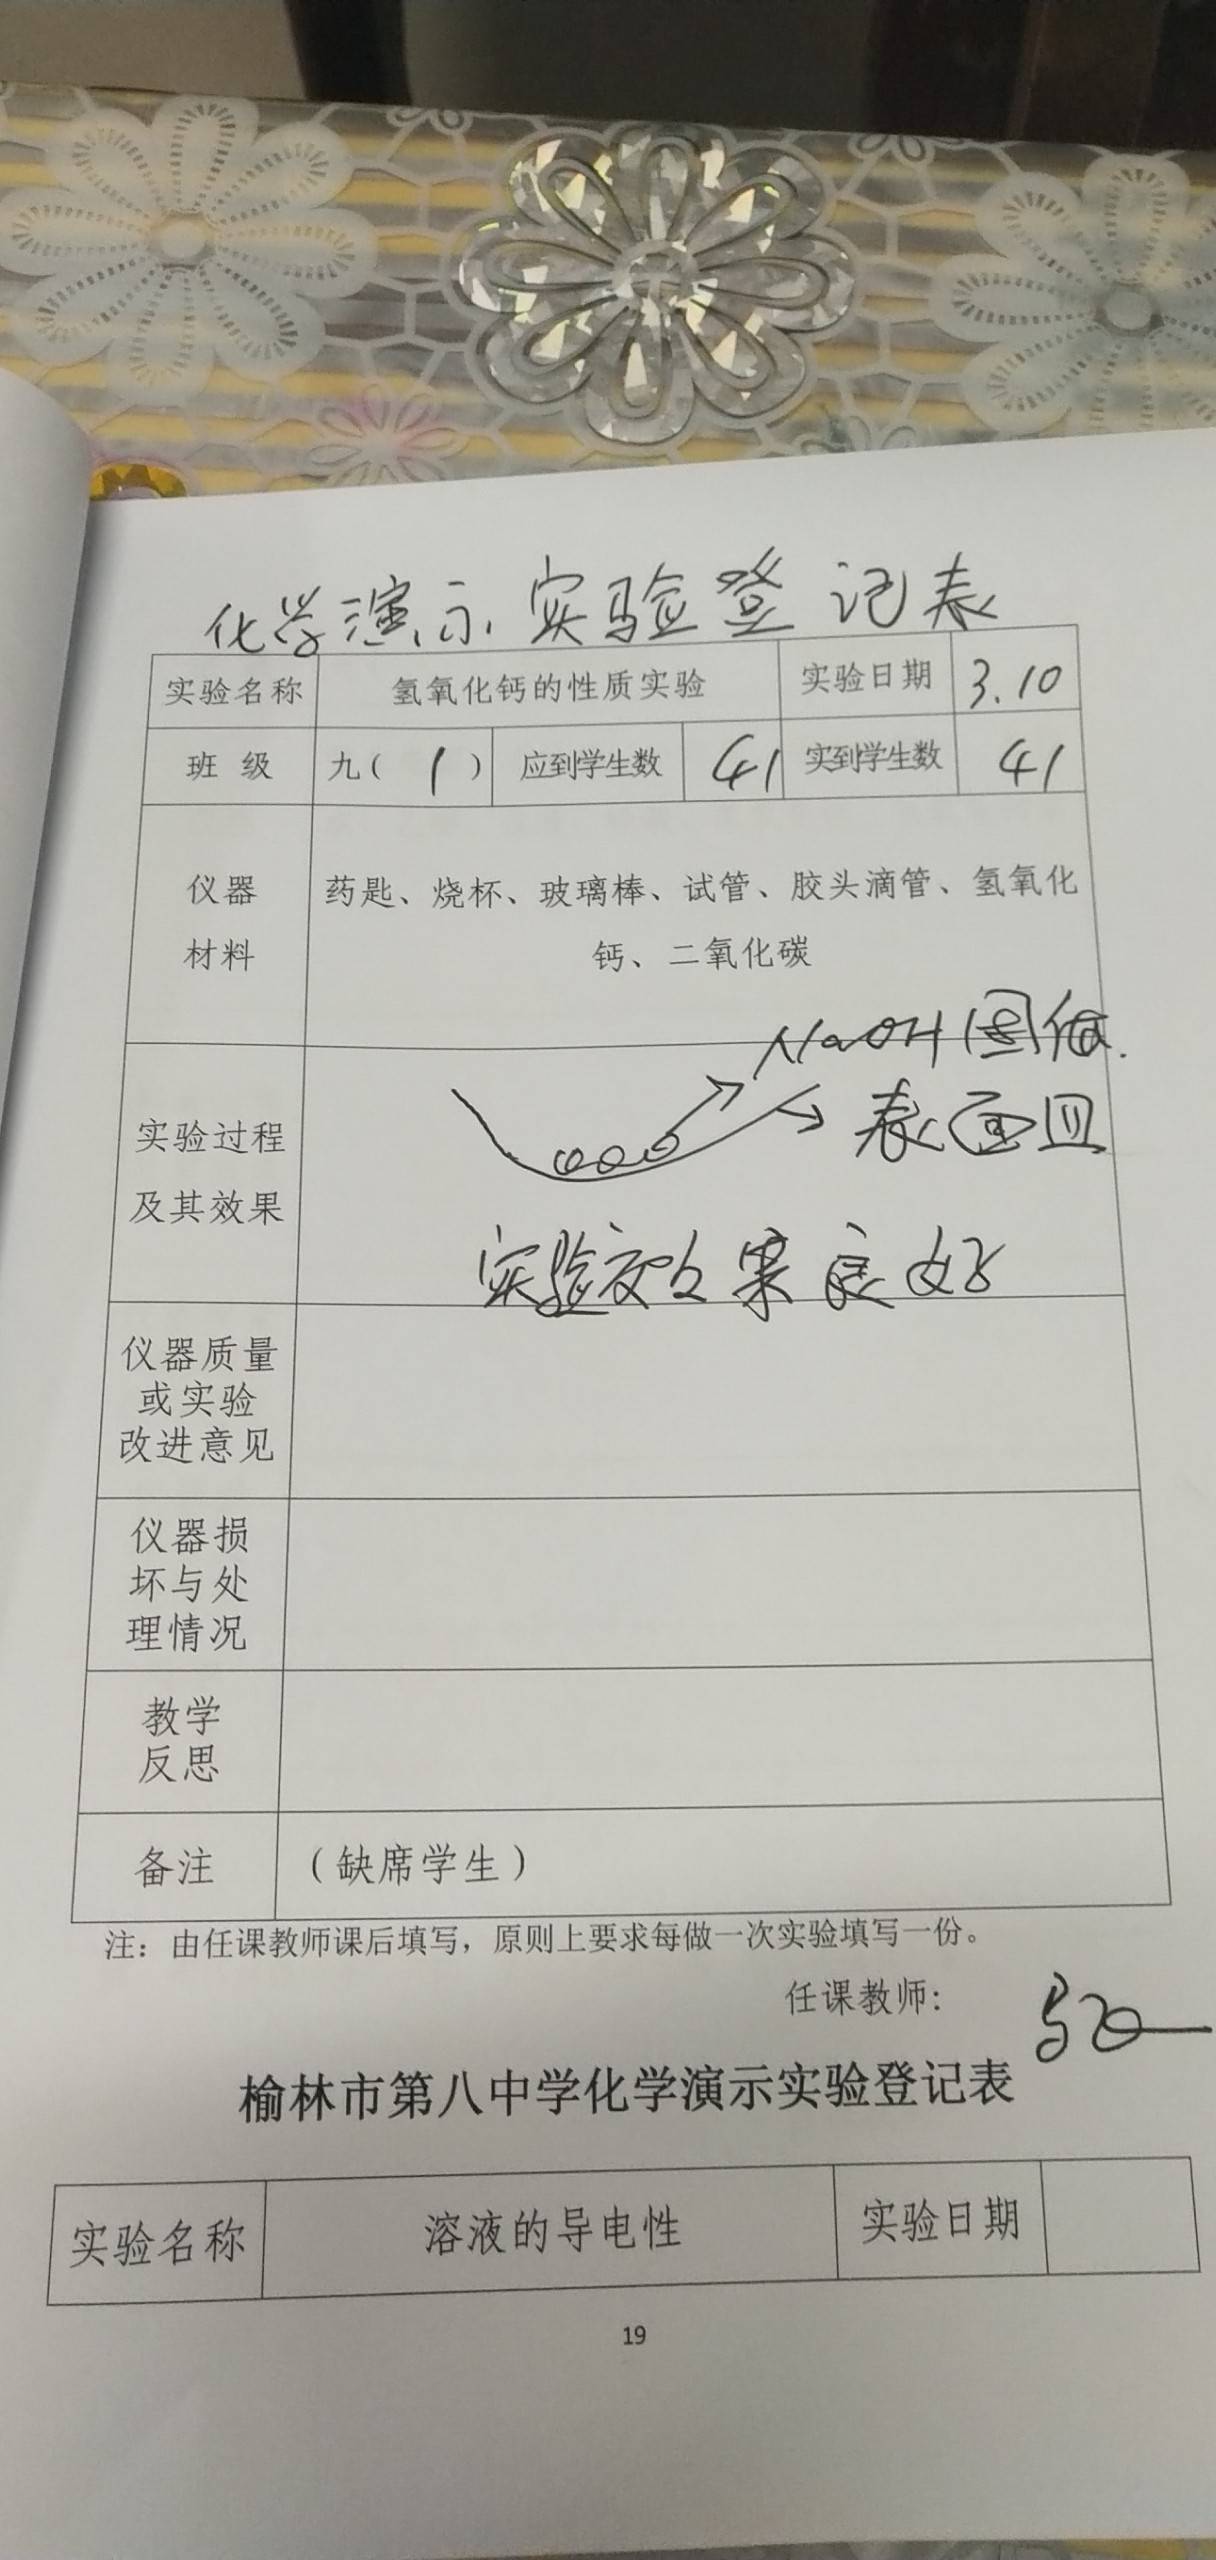 化学演示实验登记表
实验名称 氢氧化钙的性质实验 实验日期 3.10
班 级 九( 1 ) 应到学生数 41 实到学生数 41
仪器
材料
药匙、烧杯、玻璃棒、试管、胶头滴管、氢氧化
钙、二氧化碳
实验过程
及其效果
NaOH固体.
表面皿
实验效果良好
仪器质量
或实验
改进意见
仪器损
坏与处
理情况
教学
反思
备注 (缺席学生)
注：由任课教师课后填写，原则上要求每做一次实验填写一份。
任课教师：
榆林市第八中学化学演示实验登记表
实验名称 溶液的导电性 实验日期
19